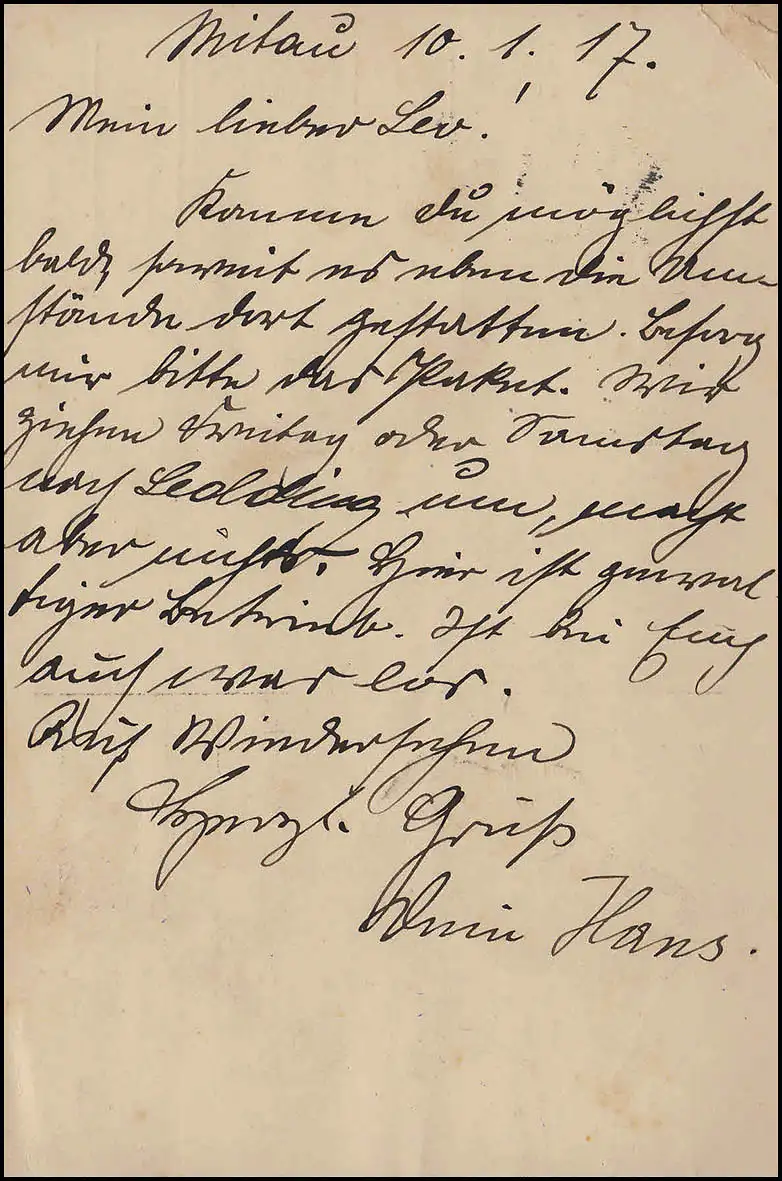 Mitau 10. 1. 17.
Mein lieber Leo!
Komme du möglichst
bald, soweit es eben die Um-
stände dort gestatten. Besorg
mir bitte das Paket. Wir
ziehen Freitag oder Samstag
nach um, macht
aber nichts. Hier ist gewal
tiger Betrieb. Ist bei Euch
auch was los.
Auf Wiedersehen
Herzl. Gruß
Dein Hans.